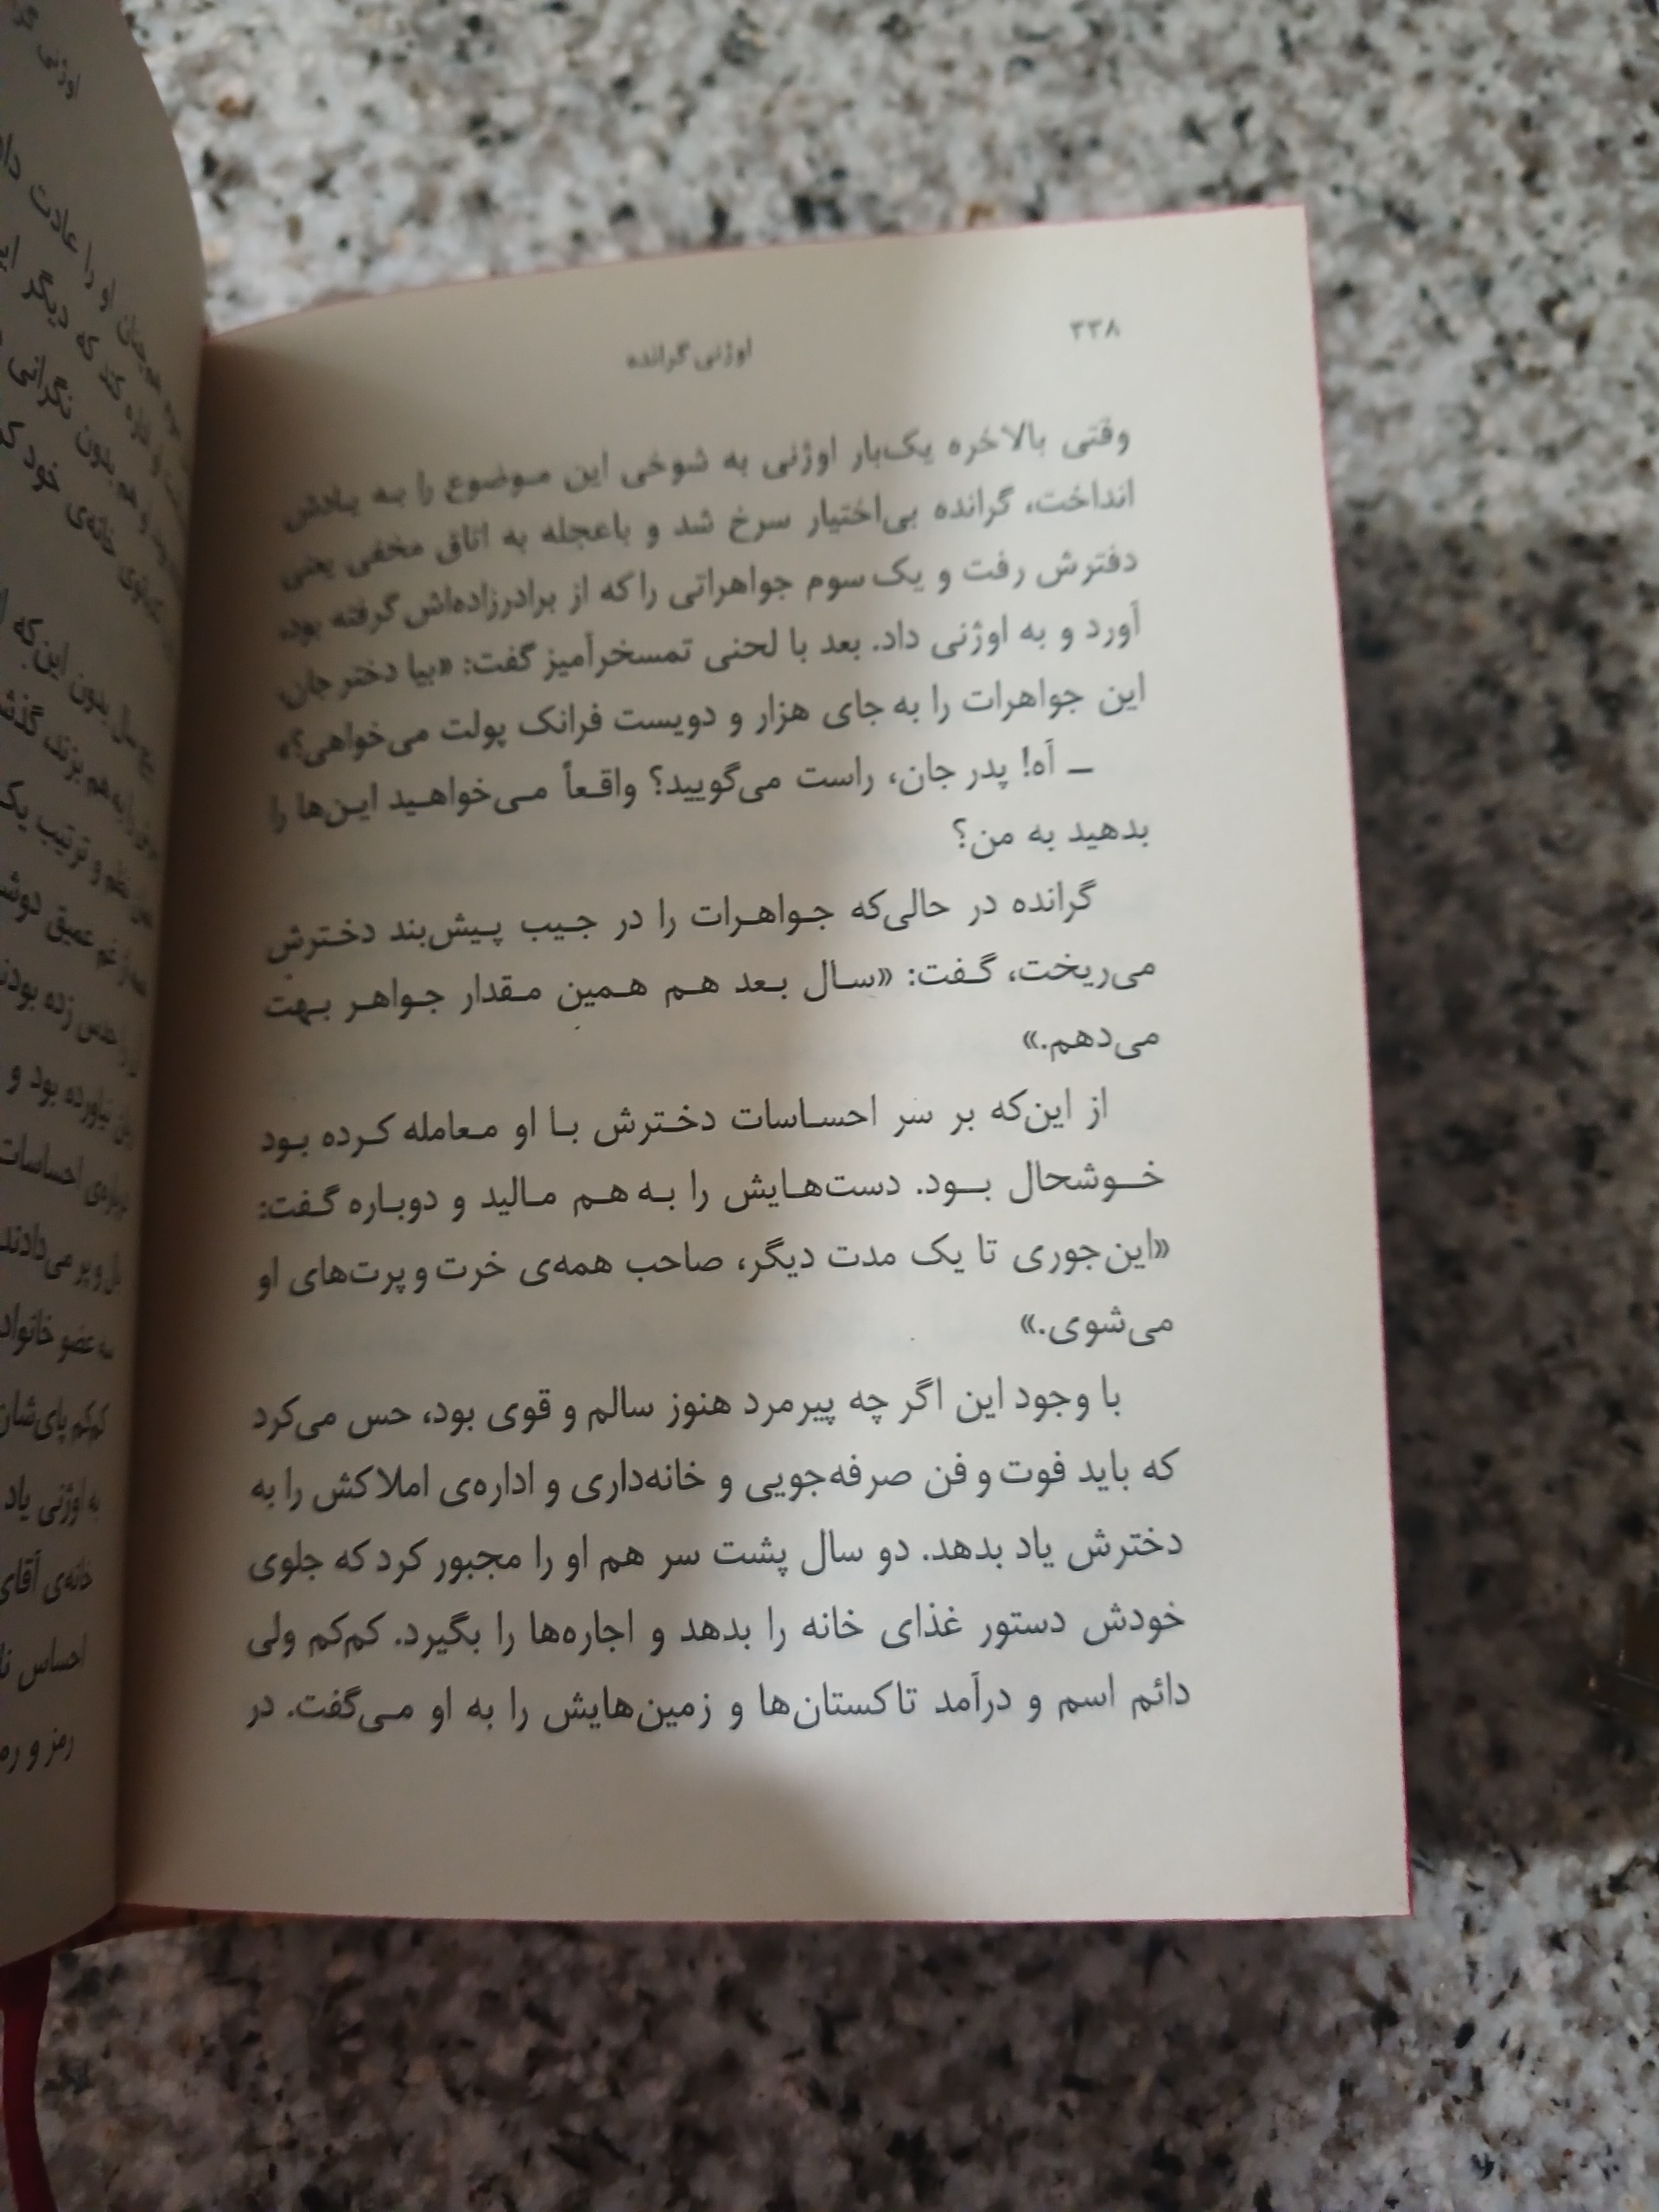 ۳۳۸
اوژنی گرانده
وقتی بالاخره یک‌بار اوژنی به شوخی این موضوع را به یادش
انداخت، گرانده بی‌اختیار سرخ شد و باعجله به اتاق مخفی یعنی
دفترش رفت و یک سوم جواهراتی را که از برادرزاده‌اش گرفته بود،
آورد و به اوژنی داد. بعد با لحنی تمسخرآمیز گفت: «بیا دختر جان،
این جواهرات را به جای هزار و دویست فرانک پولت می‌خواهی؟»
ــ آه! پدر جان، راست می‌گویید؟ واقعاً می‌خواهید این‌ها را
بدهید به من؟
گرانده در حالی‌که جواهرات را در جیب پیش‌بند دخترش
می‌ریخت، گفت: «سال بعد هم همین مقدار جواهر بهت
می‌دهم.»
از این‌که بر سر احساسات دخترش با او معامله کرده بود
خوشحال بود. دست‌هایش را به هم مالید و دوباره گفت:
«این‌جوری تا یک مدت دیگر، صاحب همه‌ی خرت و پرت‌های او
می‌شوی.»
با وجود این اگر چه پیرمرد هنوز سالم و قوی بود، حس می‌کرد
که باید فوت و فن صرفه‌جویی و خانه‌داری و اداره‌ی املاکش را به
دخترش یاد بدهد. دو سال پشت سر هم او را مجبور کرد که جلوی
خودش دستور غذای خانه را بدهد و اجاره‌ها را بگیرد. کم‌کم ولی
دائم اسم و درآمد تاکستان‌ها و زمین‌هایش را به او می‌گفت. در
اوژنی
او را عادت
کند که دیگر
هم بدون نگرانی
خانه‌ی خود
بدون این‌که
به هم بزند، گذشت
نظم و ترتیب یک
غم عمیق
حدس زده بودند
نیاورده بود و
احساسات
و پر می‌دادند
سه عضو
کم‌کم پای‌شان
به اوژنی یاد
خانه‌ی آقای
احساس
رمز و